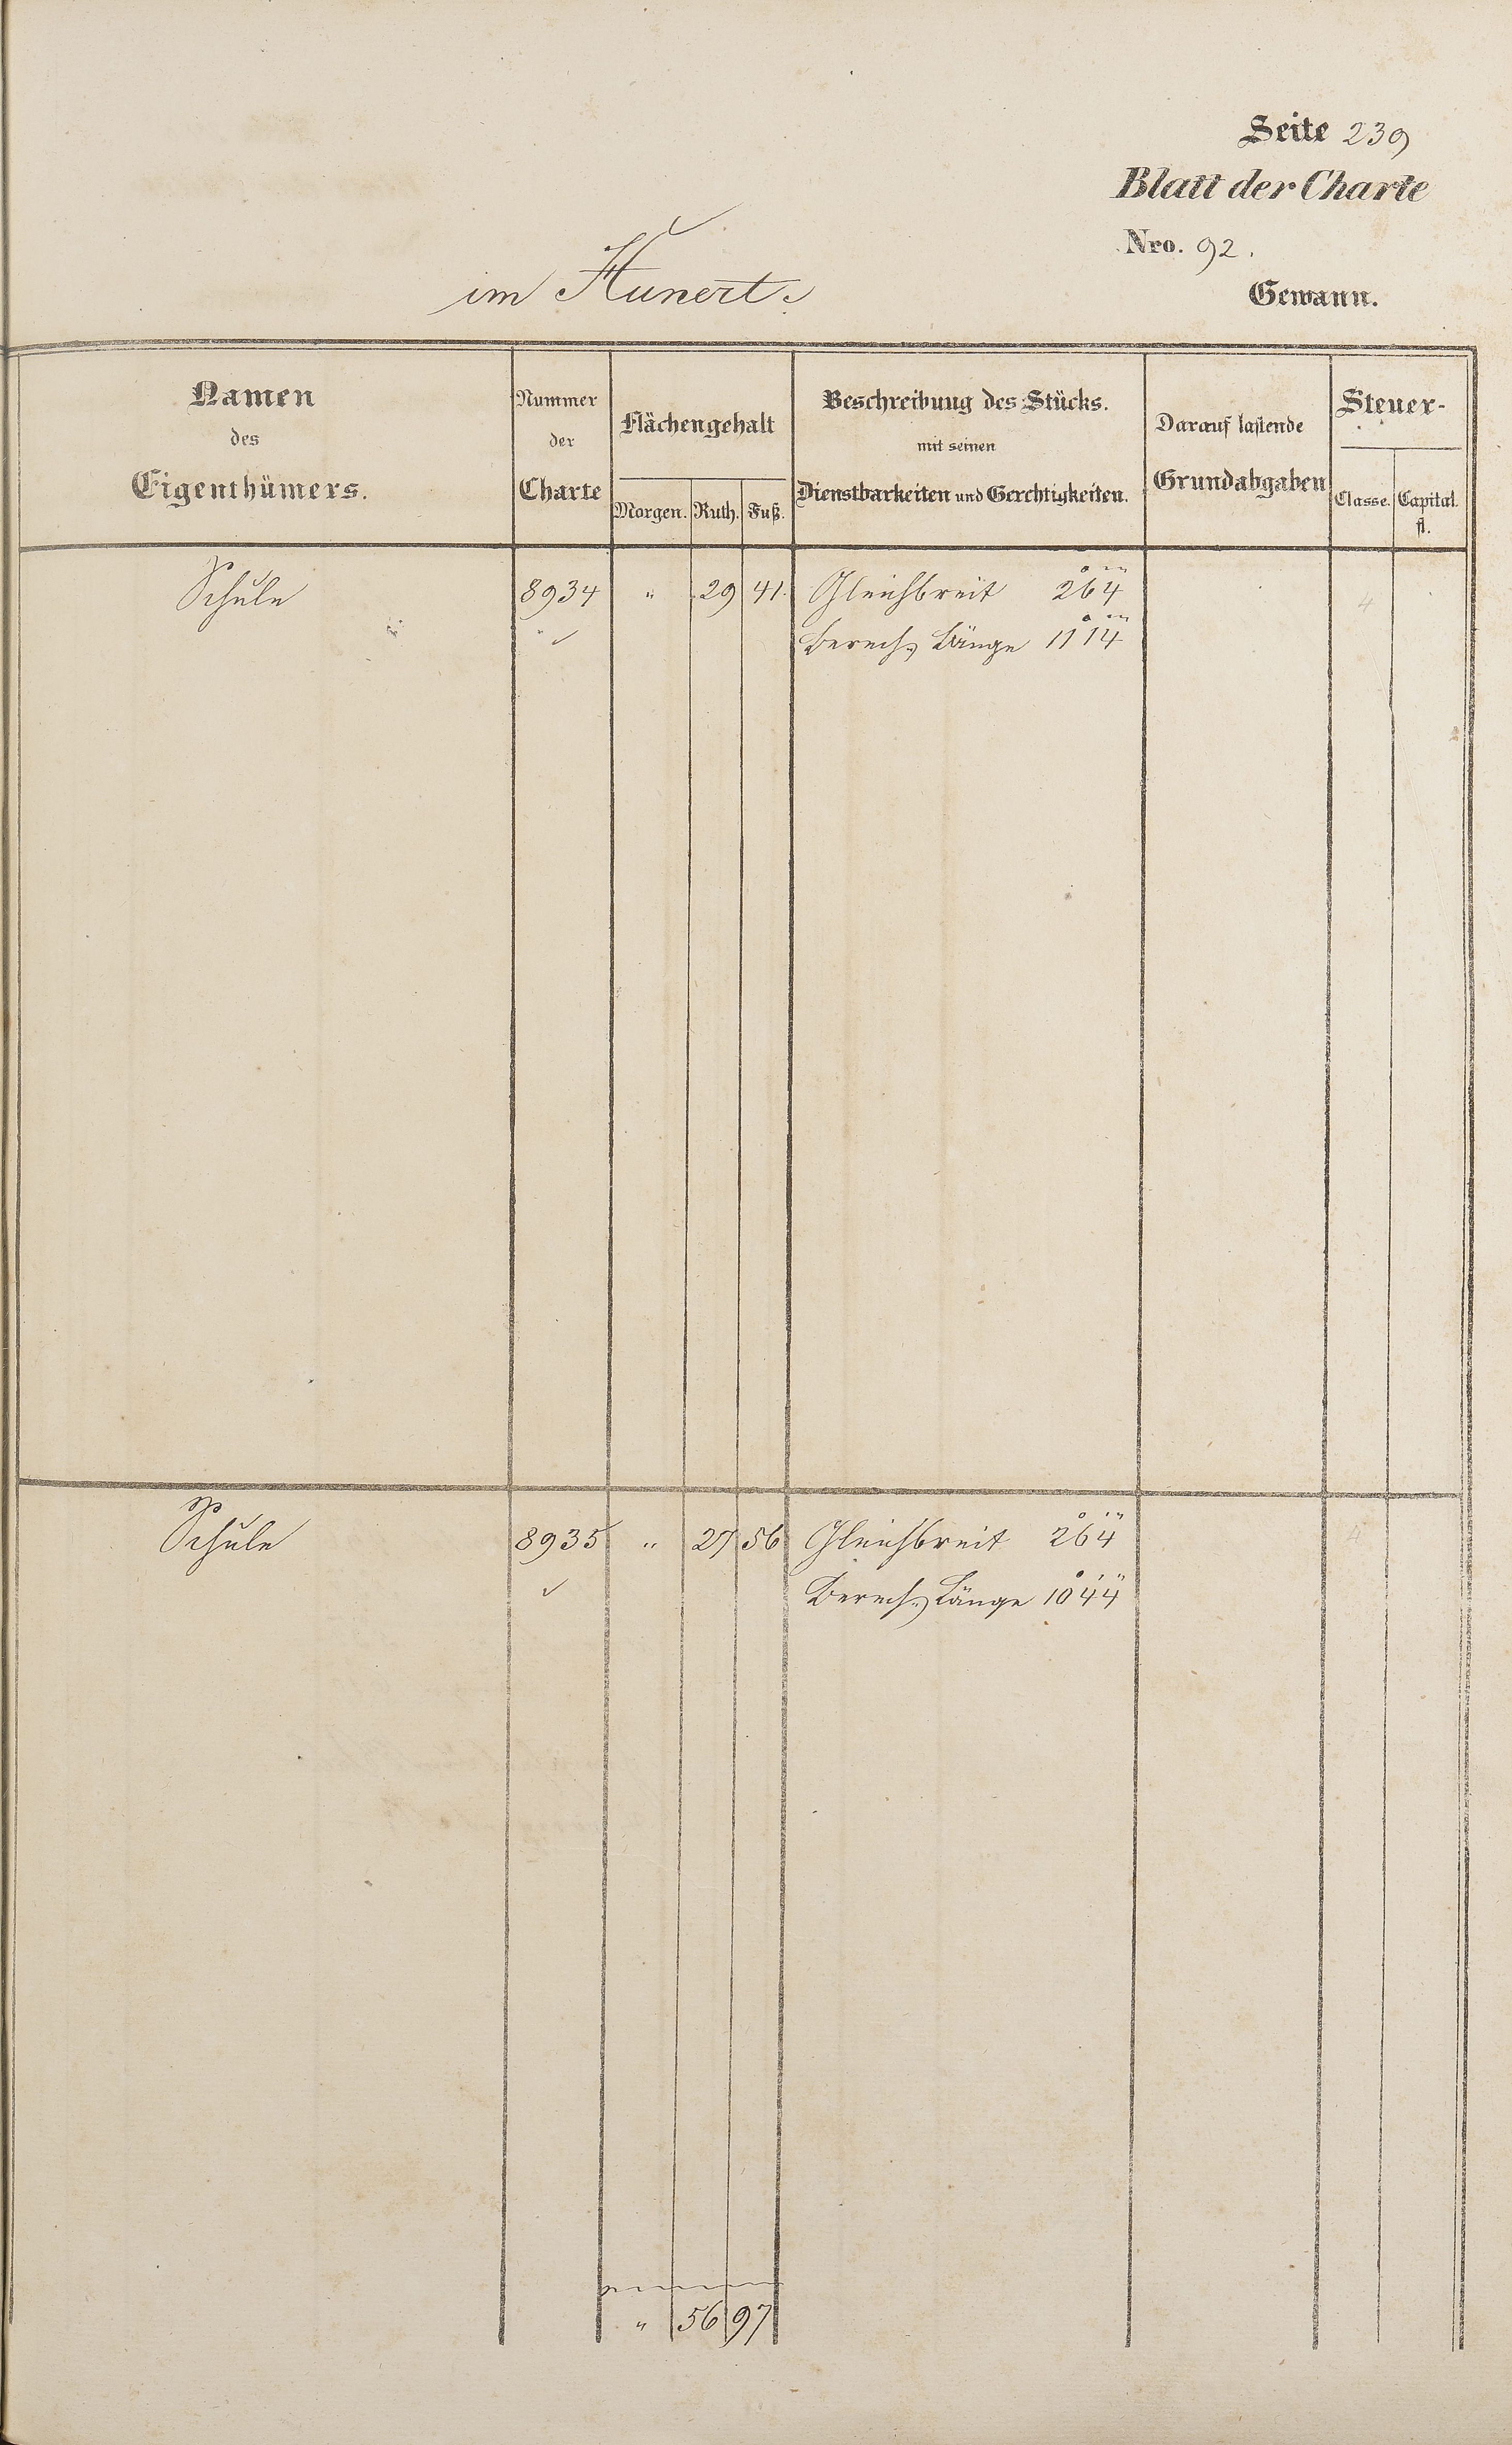 Seite 239
Blatt der Charte
Nro. 92.
im Hunert.
Gewann.
Namen des Eigenthümers.
Nummer der Charte
Flächengehalt
Morgen. Ruth. Fuß.
Beschreibung des Stücks.
mit seinen
Dienstbarkeiten und Gerechtigkeiten.
Darauf lastende
Grundabgaben
Steuer-
Classe. Capital.
fl.
Schule 8934 " 29 41 Gleichbreit 2° 6' 4" 4
Berech. Länge 11° 1' 4"
Schule 8935 " 27 56 Gleichbreit 2° 6' 4" 4
Berech. Länge 10° 4' 4"
" 56 97